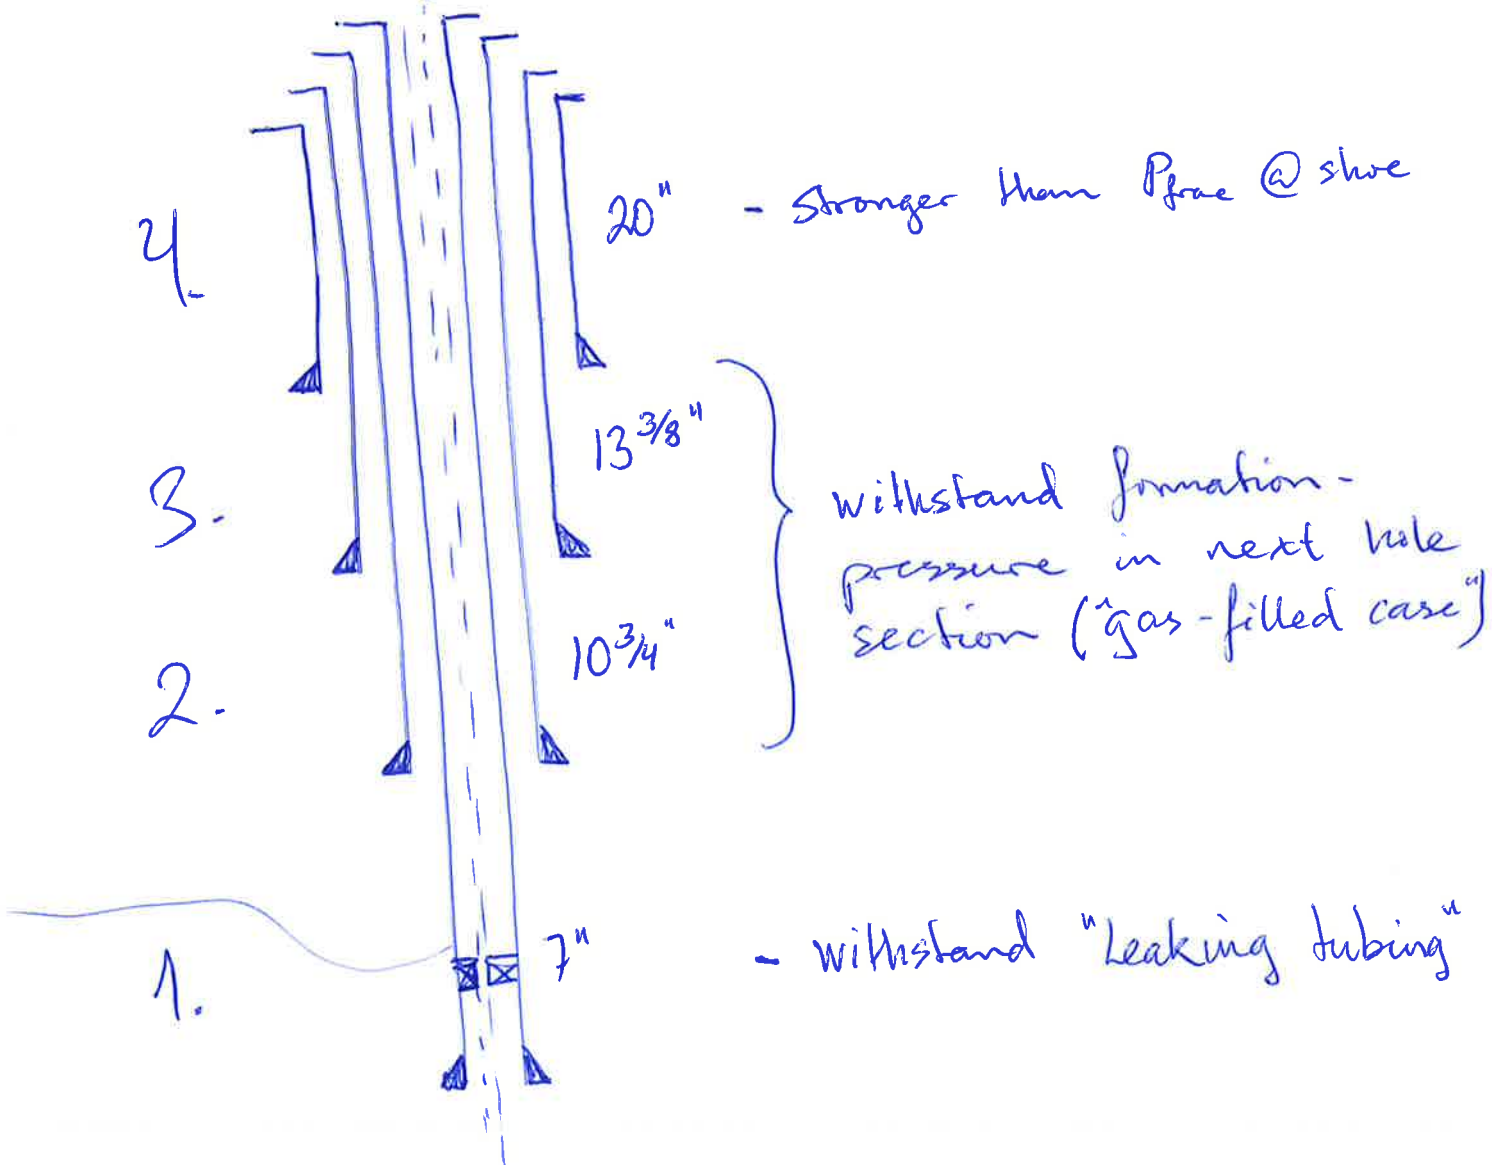 4.
20"
- stronger than Pfrac @ shoe
13 3/8"
3.
withstand formation-
pressure in next hole
section ("gas-filled case")
10 3/4"
2.
7"
- withstand "Leaking tubing"
1.